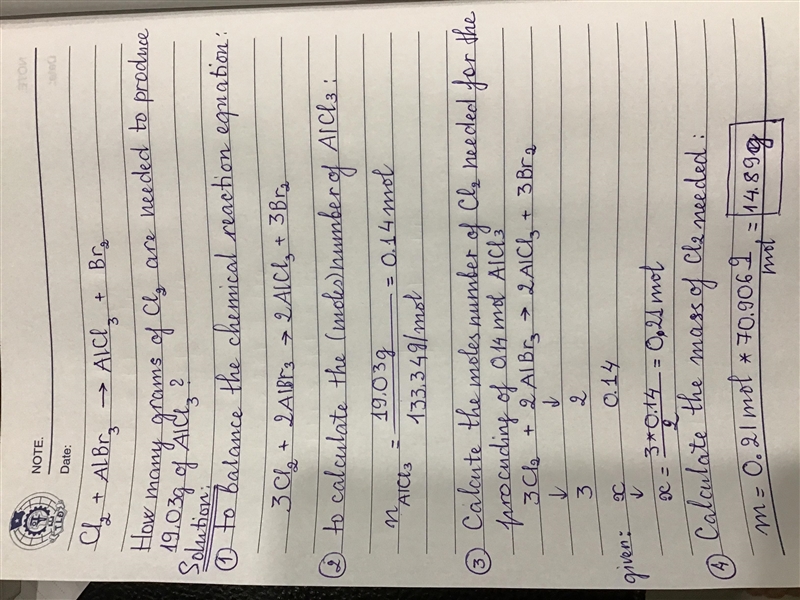 NOTE.
Date:
Cl₂ + AlBr₃ → AlCl₃ + Br₂
How many grams of Cl₂ are needed to produce
19.03g of AlCl₃?
Solution:
① to balance the chemical reaction equation:
3Cl₂ + 2AlBr₃ → 2AlCl₃ + 3Br₂
② to calculate the (moles) number of AlCl₃:
n AlCl₃ = 19.03g / 133.34g/mol = 0.14 mol
③ Calcute the moles number of Cl₂ needed for the
procuding of 0.14 mol AlCl₃
3Cl₂ + 2AlBr₃ → 2AlCl₃ + 3Br₂
↓ ↓
3 2
given: x 0.14
↓
x = 3*0.14 / 2 = 0.21 mol
④ Calculate the mass of Cl₂ needed:
m = 0.21 mol * 70.906 g/mol = 14.89g